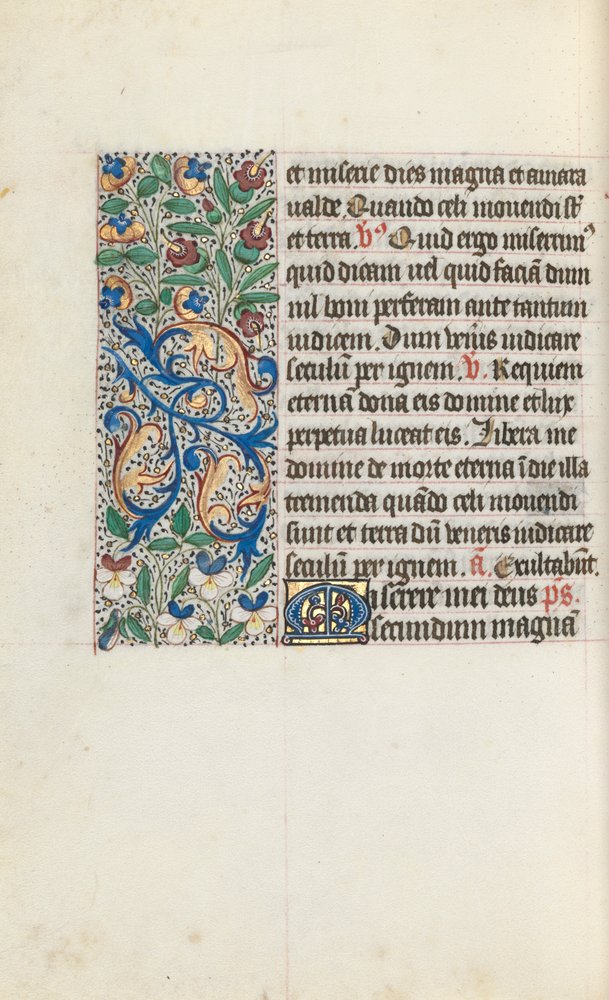 et miserie dies magna et amara
valde. Quando celi movendi st̄
et terra. V̄9 Quid ergo miserrim9
quid dicam vel quid faciā dum
nil boni perferam ante tantum
iudicem. Dum ven̄is iudicare
seculū per ignem. V̄. Requiem
eternā dona eis domine et lux
perpetua luceat eis. Libera me
domine de morte eterna ī die illa
tremenda quādo celi movendi
sunt et terra dū veneris iudicare
seculū per ignem. ā. Exultabūt.
Miserere mei deus p̄s.
secundum magnā